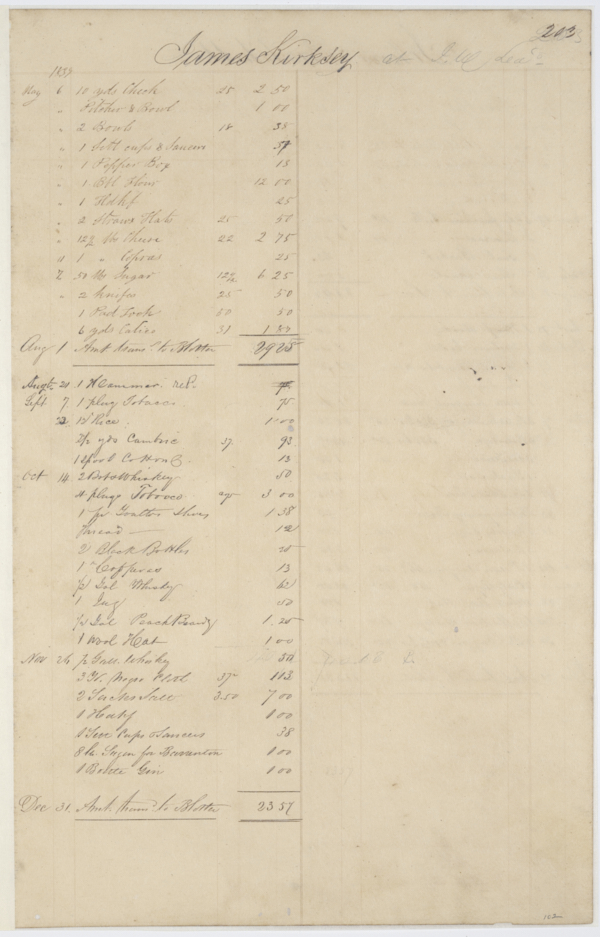 203
James Kirksey at
1857
May 6 10 yds Check 25 2 50
" Pitcher & Bowl 1 00
" 2 Bowls 18 38
" 1 Sett cups & Saucers
" 1 Pepper Box 13
" 1 Bbl Flour 12 00
" 1 Hdkf 25
" 2 Straw Hats 25 50
" 12½ lbs Cheese 22 2 75
" 1 " Copras 25
7 50 lbs Sugar 12½ 6 25
" 2 knifes 25 50
1 Pad Lock 50 50
6 yds Calico 31
Aug 1 Amt trans. to Blotter 29 28
Augt. 20 1 Hammer
Sept 7 1 plug Tobacco 75
22 Rice 1 00
2½ yds Cambric 37 93
1 Spool Cotton 13
Oct 14 2 Bots Whiskey 50
4 plugs Tobacco 3 00
1 pr Shoes 1 38
Thread — 12
2 Black Bottles 25
1 " Coppras 13
½ Gal Whisky 62
1 Jug 50
½ Gal Peach Brandy 1.25
1 Wool Hat 1 00
Nov 26 ½ Gall. Whisky 50
3 Negro Cloth 37½ 113
2 Sacks Salt 3.50 7 00
1 00
1 Set Cups & Saucers 38
8 lb Sugar for 1 00
1 Bottle Gin 1 00
Dec 31. Amt. trans. to Blotter 23 57